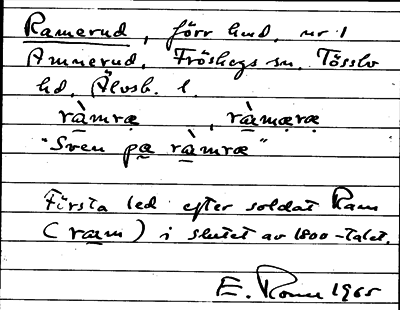 Ramerud, förr hmd, nr 1
Amnerud, Fröskogs sn, Tössbo
hd, Älvsb. l.
ràmræ, ràmæræ
"Sven pæ ràmræ"
Första led efter soldat Ram
(ram) i slutet av 1800-talet.
E. 1965